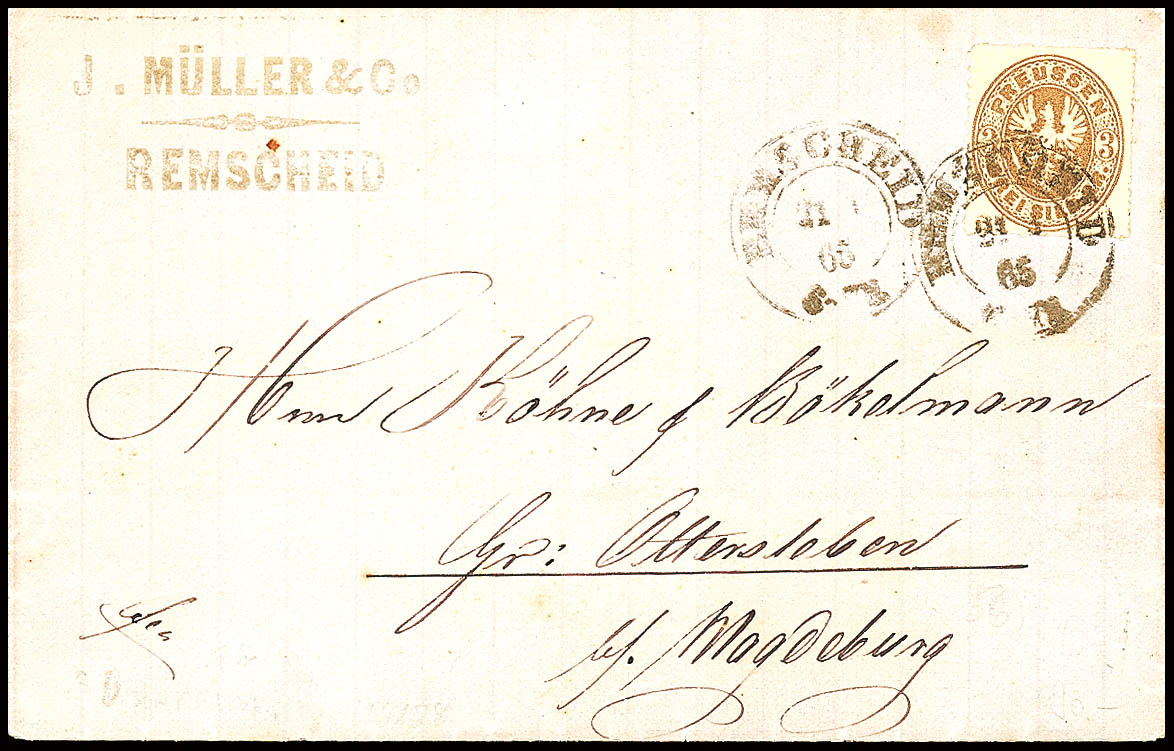 J. MÜLLER & Co
REMSCHEID
PREUSSEN
3
3
REMSCHEID
21
65
REMSCHEID
21
65
Herrn Köhne & Bökelmann
Gr: Ottersleben
b/. Magdeburg